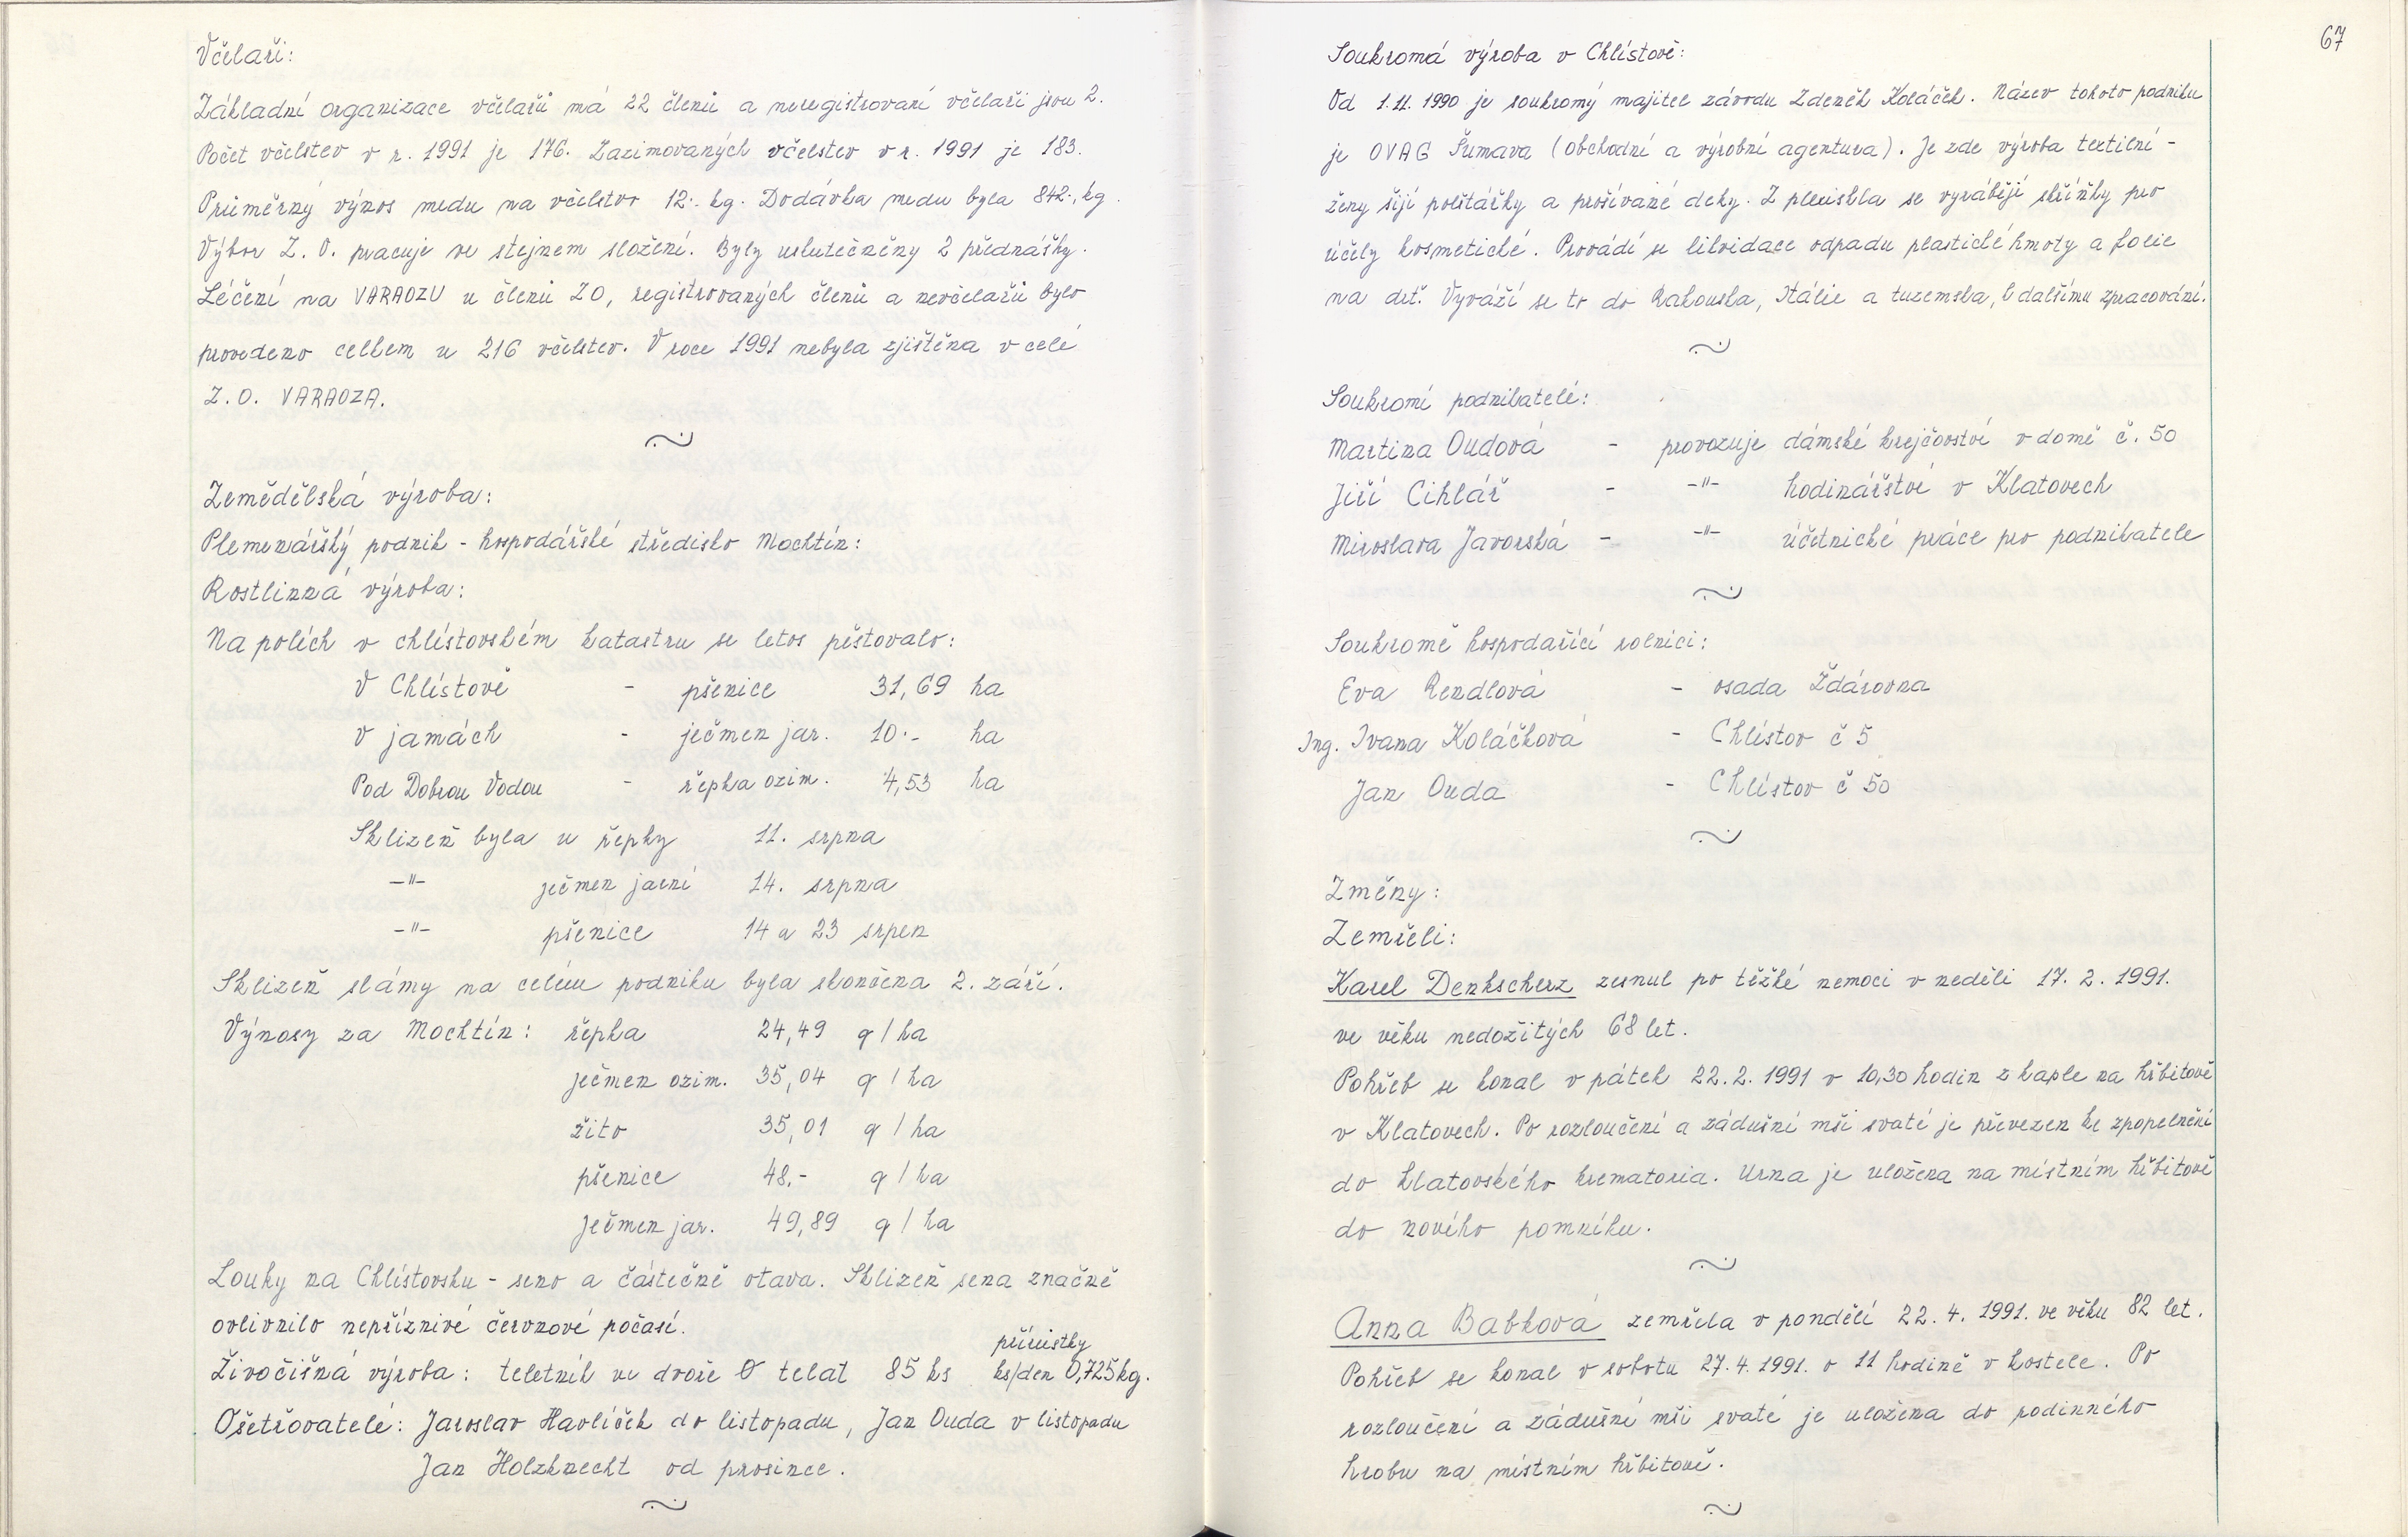 Včelaři:
Základní organizace včelařů má 22 členů a neregistrovaní včelaři jsou 2.
Počet včelstev v r. 1991 je 176. Zazimovaných včelstev v r. 1991 je 183.
Průměrný výnos medu na včelstvo 12.- kg. Dodávka medu byla 842.- kg.
Výbor Z. O. pracuje ve stejnem složení. Byly uslutečněny 2 přednášky.
Léčení na VARAOZU u členů ZO, registrovaných členů a nevčelařů bylo
provedeno celkem u 216 včelstev. V roce 1991 nebyla zjištěna v celé
Z. O. VARAOZA.
Zemědělská výroba:
Plemenářský podnik - hospodářské středisko Mochtín:
Rostlinná výroba:
Na polích v chlístovském katastru se letos pěstovalo:
V Chlístově - pšenice 31,69 ha
V jamách - ječmen jar. 10.- ha
Pod Dobrou Vodou - řepka ozim. 4,53 ha
Sklizeň byla u řepky 11. srpna
-"- ječmen jarní 14. srpna
-"- pšenice 14 a 23 srpen
Sklizeň slámy na celém podniku byla skončena 2. září.
Výnosy za Mochtín: řepka 24,49 q/ha
ječmen ozim. 35,04 q/ha
žito 35,01 q/ha
pšenice 48.- q/ha
ječmen jar. 49,89 q/ha
Louky na Chlístovsku - seno a částečně otava. Sklizeň sena značně
ovlivnilo nepříznivé červnové počasí.
přírůstky
Živočišná výroba: teletník ve dvoře Ø telat 85 ks ks/den 0,725kg.
Ošetřovatelé: Jaroslav Havlíček do listopadu, Jan Ouda v listopadu
Jan Holzknecht od prosince.
67
Soukromá výroba v Chlístově:
Od 1.11. 1990 je soukromý majitel závodu Zdeněk Koláček. Název tohoto podniku
je OVAG Šumava (Obchodní a výrobní agentura). Je zde výroba textilní -
ženy šijí polštářky a prošívané deky. Z plexiskla se vyrábějí skříňky pro
účely kosmetické. Provádí se likvidace odpadu plastické hmoty a folie
na drť. Vyváží se to do Rakouska, Itálie a tuzemska, k dalšímu zpracování.
Soukromí podnikatelé:
Martina Oudová - provozuje dámské krejčovství v domě č. 50
Jiří Cihlář - -"- hodinářství v Klatovech
Miroslava Javorská - -"- účetnické práce pro podnikatele
Soukromě hospodařící rolníci:
Eva Rendlová - osada Ždárovna
Ing. Ivana Koláčková - Chlístov č 5
Jan Ouda - Chlístov č 50
Změny:
Zemřeli:
Karel Denkscherz zesnul po těžké nemoci v neděli 17. 2. 1991.
ve věku nedožitých 68 let.
Pohřeb se konal v pátek 22. 2. 1991 v 10,30 hodin z kaple na hřbitově
v Klatovech. Po rozloučení a zádušní mši svaté je převezen ke zpopelnění
do klatovského krematoria. Urna je uložena na místním hřbitově
do nového pomníku.
Anna Babková zemřela v pondělí 22. 4. 1991. ve věku 82 let.
Pohřeb se konal v sobotu 27. 4. 1991. v 11 hodině v kostele. Po
rozloučení a zádušní mši svaté je uložena do rodinného
hrobu na místním hřbitově.